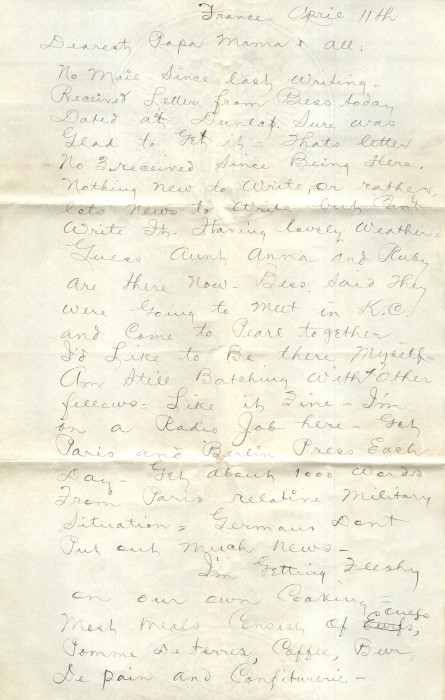 France April 11th
Dearest Papa Mama & all;
No Mail Since last writing-
Received Letter from Bess today
Dated at Dunlap. Sure was
Glad to Get it - Thats letter
No 3 received Since Being Here.
Nothing New to Write, or rather,
lots News to Write but Cant
Write It. Having lovely Weather=
Guess Aunt Anna and Ruby
are there Now - Bess. Said They
were Going to Meet in K.C.
and Come to Pearl together
I'd Like to Be there Myself-
Am Still Batching With Other
fellows = Like it Fine - I'm
on a Radio Job here - Get
Paris and Berlin Press Each
Day - Get about 1000 Words
From Paris relative Military
Situation = Germans Dont
Put out Much News -
I'm Getting Fleshy
on our own Cooking =
Most Meals Consist of
Pomme De terres, Coffee, Beur,
De pain and Confiturerie -